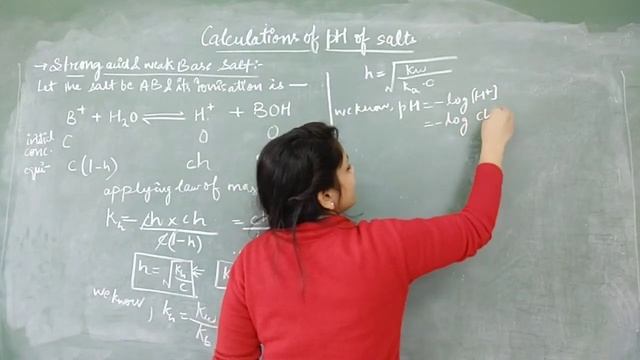 Calculations of pH of salts
→ Strong acid & weak Base salt:-
Let the salt be AB & its ionisation is —
B⁺ + H₂O ⇌ H⁺ + BOH
initial conc. C 0 0
equi- C(1-h) ch
applying law of mas
Kₕ = ch x ch / c(1-h) = 
h = √(Kₕ/C) ⇐
we know, kₕ = Kw/Kb
h = √(Kw/Ka·C)
we know, pH = -log[H⁺]
= -log